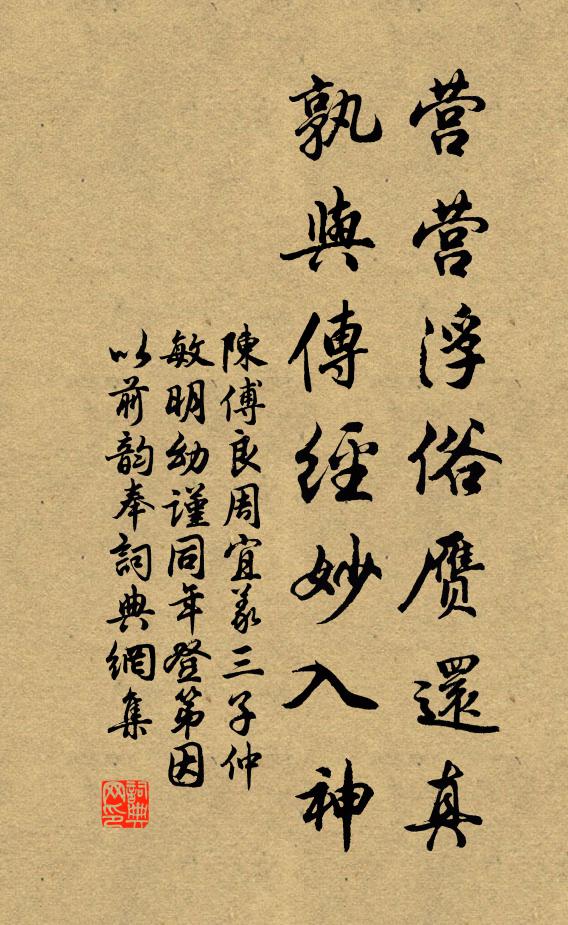 营营浮俗赝還真
孰與傳經妙入神
陳傅良周宜义三子仲
敏明幼谨同年登第因
以前韵奉詞典網集
詞典网印